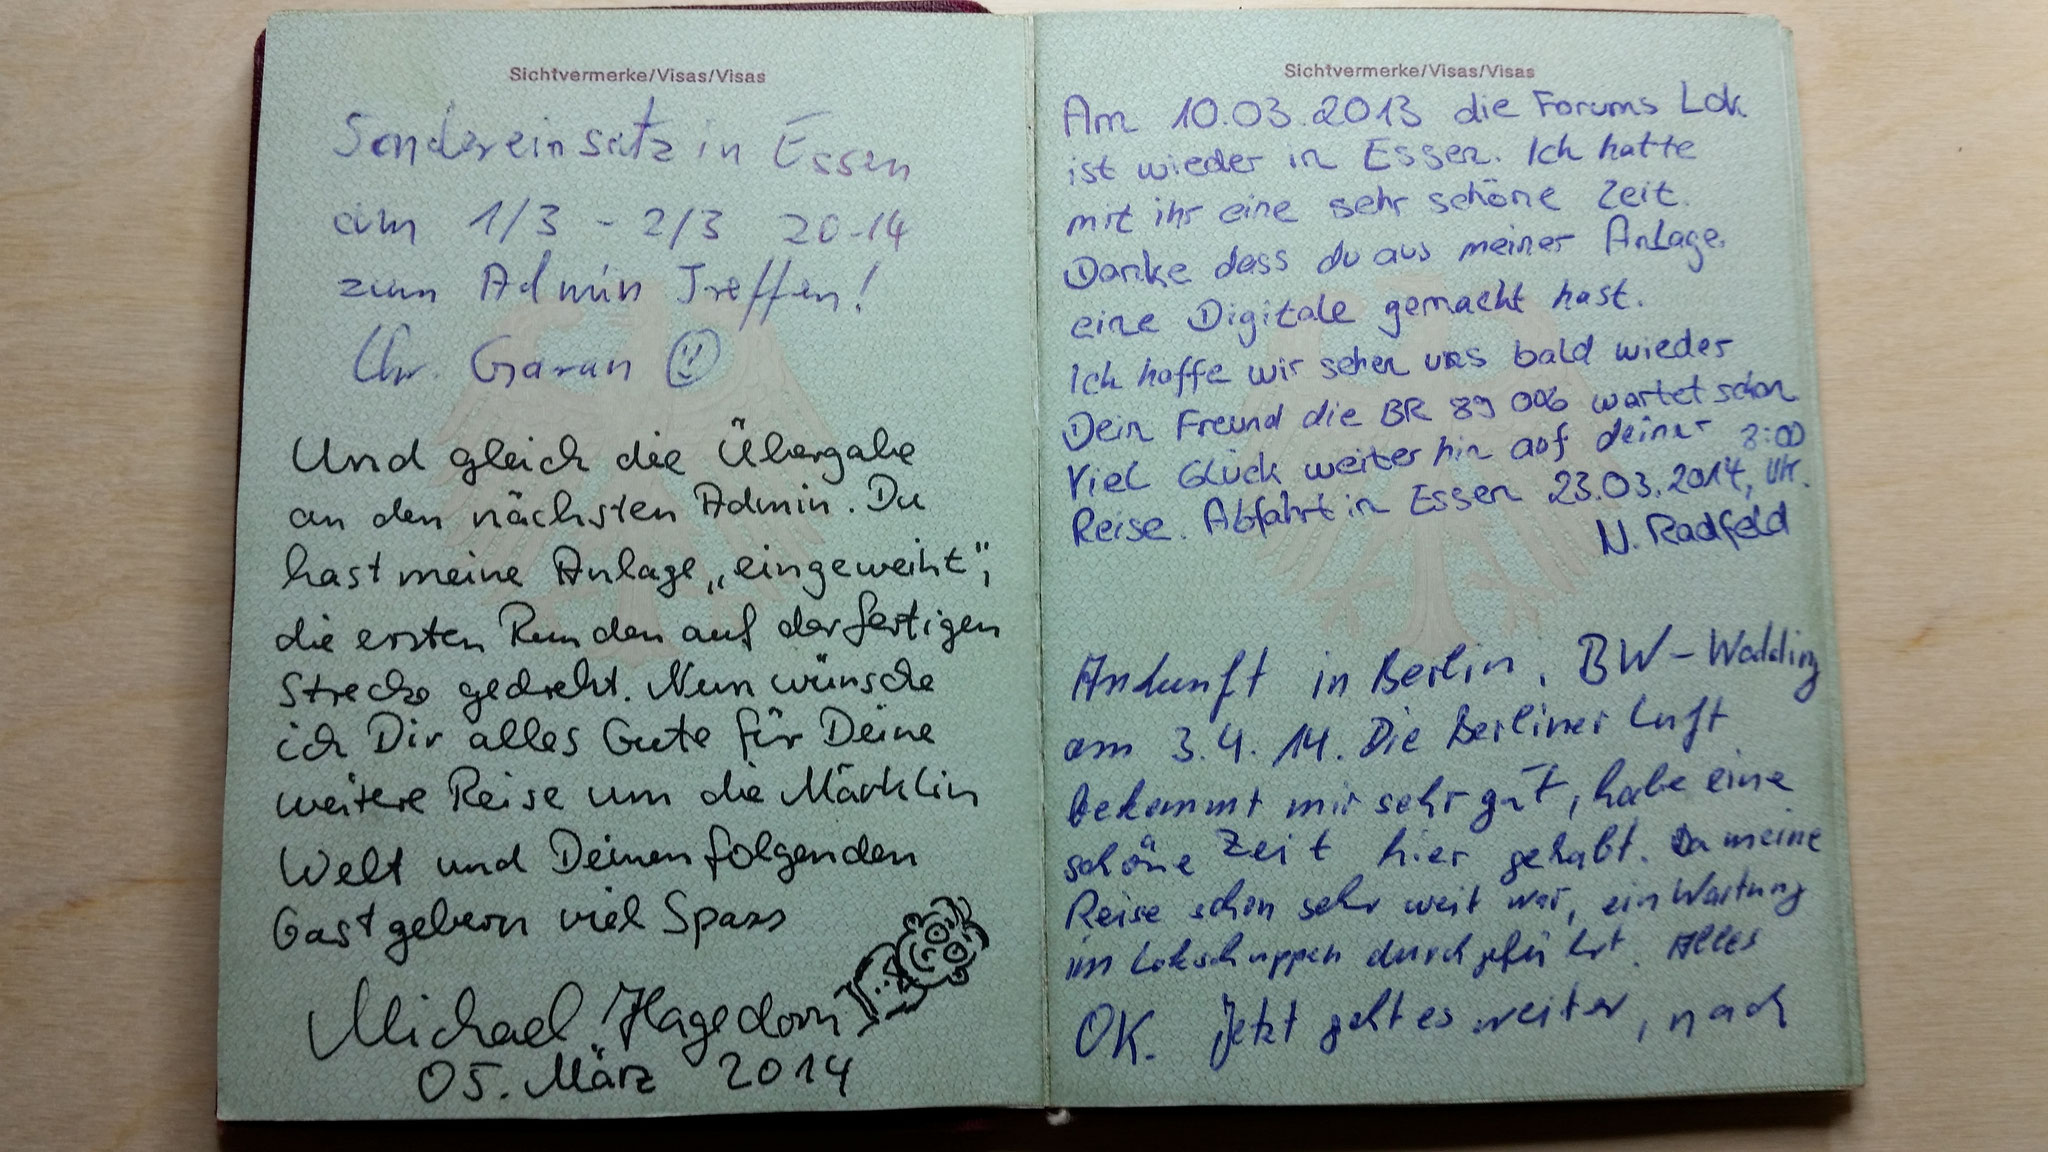 Sichtvermerke/Visas/Visas
Sondereinsatz in Essen
am 1/3 - 2/3 2014
zum Admin Treffen!
Chr. Garan
Und gleich die Übergabe
an den nächsten Admin. Du
hast meine Anlage „eingeweiht“,
die ersten Runden auf der fertigen
Strecke gedreht. Nun wünsche
ich Dir alles Gute für Deine
weitere Reise um die Märklin
Welt und Deinen folgenden
Gastgebern viel Spass
Michael Hagedorn
05. März 2014
Sichtvermerke/Visas/Visas
Am 10.03.2013 die Forums Lok
ist wieder in Essen. Ich hatte
mit ihr eine sehr schöne Zeit.
Danke dass du aus meiner Anlage
eine Digitale gemacht hast.
Ich hoffe wir sehen uns bald wieder
Dein Freund die BR 89 006 wartet schon
Viel Glück weiterhin auf deiner
Reise. Abfahrt in Essen 23.03.2014, 8:00 Uhr.
N. Radfeld
Ankunft in Berlin, BW-Wedding
am 3.4.14. Die Berliner Luft
bekommt mir sehr gut, habe eine
schöne Zeit hier gehabt. Da meine
Reise schon sehr weit war, ein Wartung
im Lokschuppen durchgeführt. Alles
OK. Jetzt geht es weiter, nach